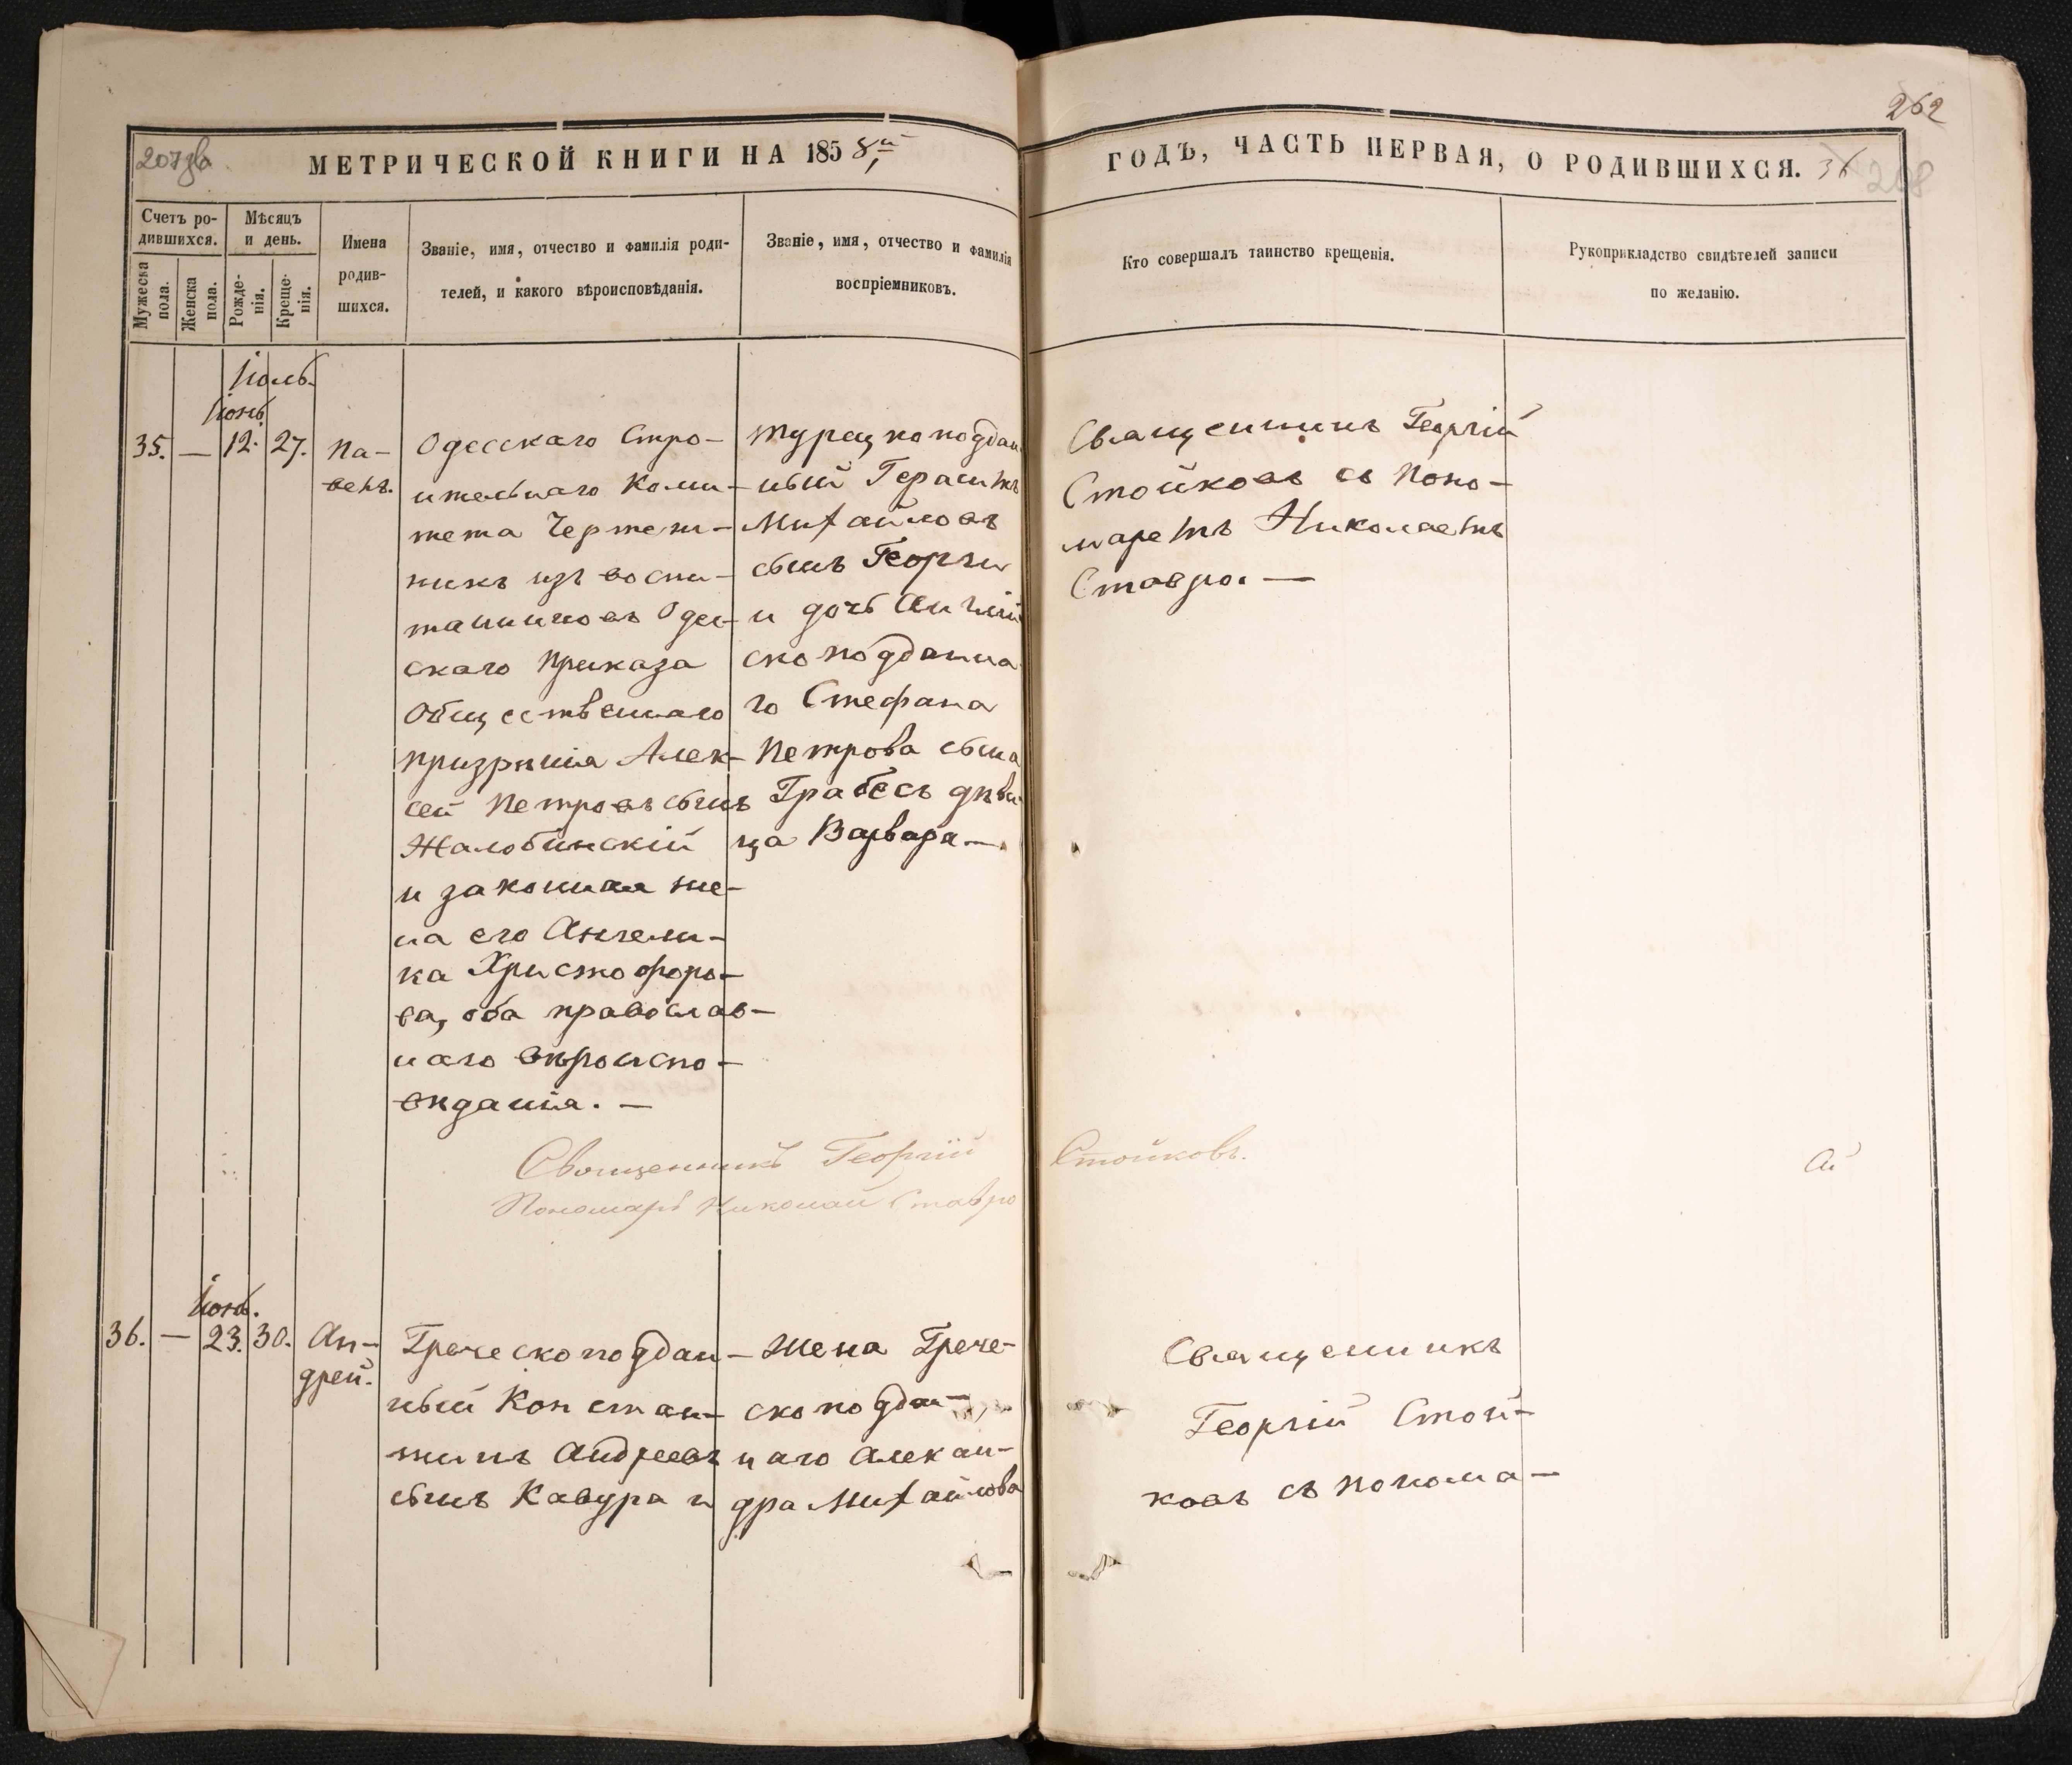 262
207зв
МЕТРИЧЕСКОЙ КНИГИ НА 1858й
ГОДЪ, ЧАСТЬ ПЕРВАЯ, О РОДИВШИХСЯ. 36 208
Счетъ ро-
дившихся.
Мужеска
пола.
Женска
пола.
Мѣсяцъ
и день.
Рожде-
нія.
Креще-
нія.
Имена
родив-
шихся.
Званіе, имя, отчество и фамилія роди-
телей, и какого вѣроисповѣданія.
Званіе, имя, отчество и фамилія
воспріемниковъ.
Кто совершалъ таинство крещенія.
Рукоприкладство свидѣтелей записи
по желанію.
Іюль.
Іюнь
35. — 12. 27.
Па-
велъ.
Одесскаго Стро-
ительнаго Коми-
тета Чертеж-
никъ изъ воспи-
танниковъ Одес-
скаго Приказа
Общественнаго
призрѣнія Алек-
сей Петровъ сынъ
Жалобинскій
и законная же-
на его Ангели-
ка Христофоро-
ва, оба православ-
наго вѣроиспо-
вѣданія. —
Турецкоподдан
ный Герасимъ
Михайловъ
сынъ Георги
и дочь Англій
скоподданна
го Стефана
Петрова сына
Грабесъ дѣви
ца Варвара —
Священникъ Георгій
Стойковъ съ Поно-
маремъ Николаемъ
Ставро. —
Священникъ Георгій Стойковъ.
Пономарь Николай Ставро
Іюнь.
36. — 23. 30.
Ан-
дрей.
Греческоподдан-
ный Констан-
тинъ Андреевъ
сынъ Кавура и
жена Грече-
скоподдан-
наго Алексан-
дра Михайлова
Священникъ
Георгій Стой-
ковъ съ понома-